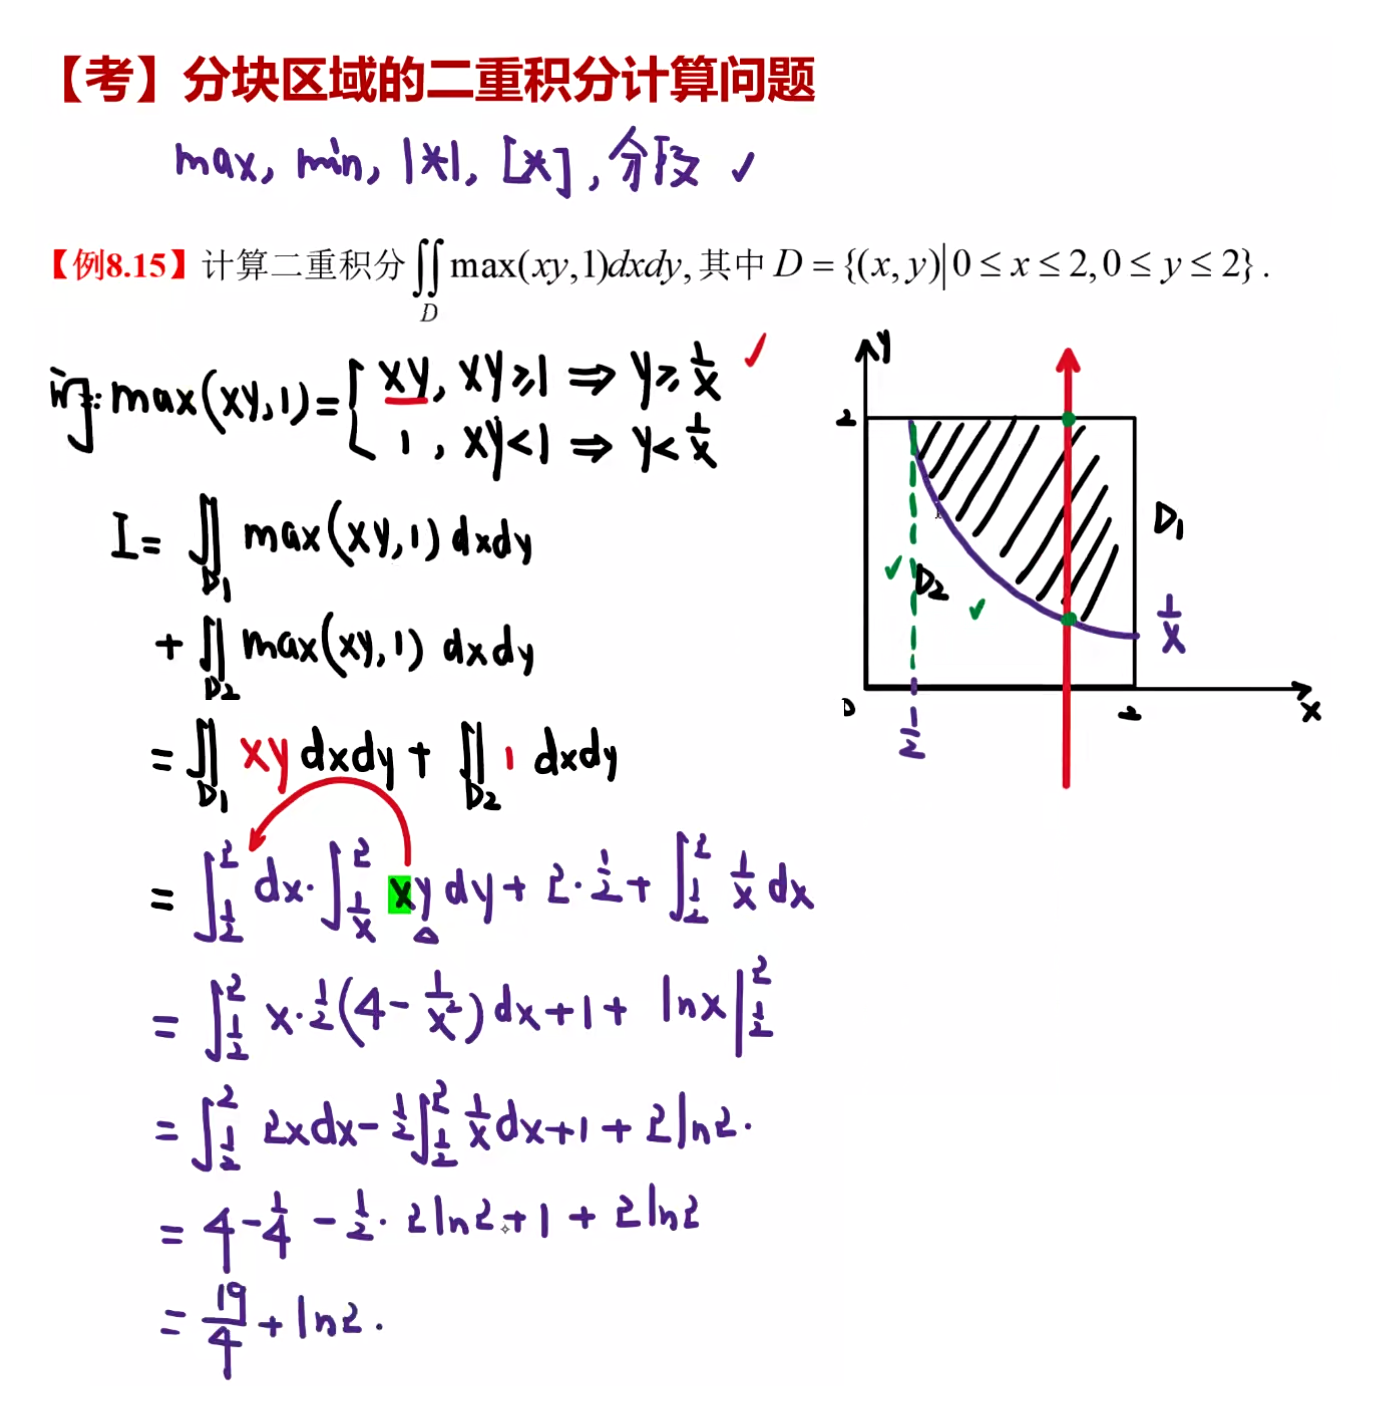 【考】分块区域的二重积分计算问题
max, min, |*|, [*], 分段 ✓
【例8.15】计算二重积分∬_D max(xy,1)dxdy, 其中 D = {(x, y)|0 ≤ x ≤ 2, 0 ≤ y ≤ 2} .
max(xy,1)= { xy, xy≥1 ⇒ y≥1/x ✓
1, xy<1 ⇒ y<1/x
I= ∬_D1 max(xy,1) dxdy
+ ∬_D2 max(xy,1) dxdy
= ∬_D1 xy dxdy + ∬_D2 1 dxdy
= ∫_{1/2}^{2} dx·∫_{1/x}^{2} xy dy + 2·1/2 + ∫_{1/2}^{2} 1/x dx
= ∫_{1/2}^{2} x·1/2(4-1/x²)dx+1+ lnx|_{1/2}^{2}
= ∫_{1/2}^{2} 2xdx-1/2∫_{1/2}^{2} 1/x dx+1+2ln2.
= 4-1/4 -1/2·2ln2+1+2ln2
= 19/4+ln2.
y
2
D1
D2
1/x
0
1/2
2
x